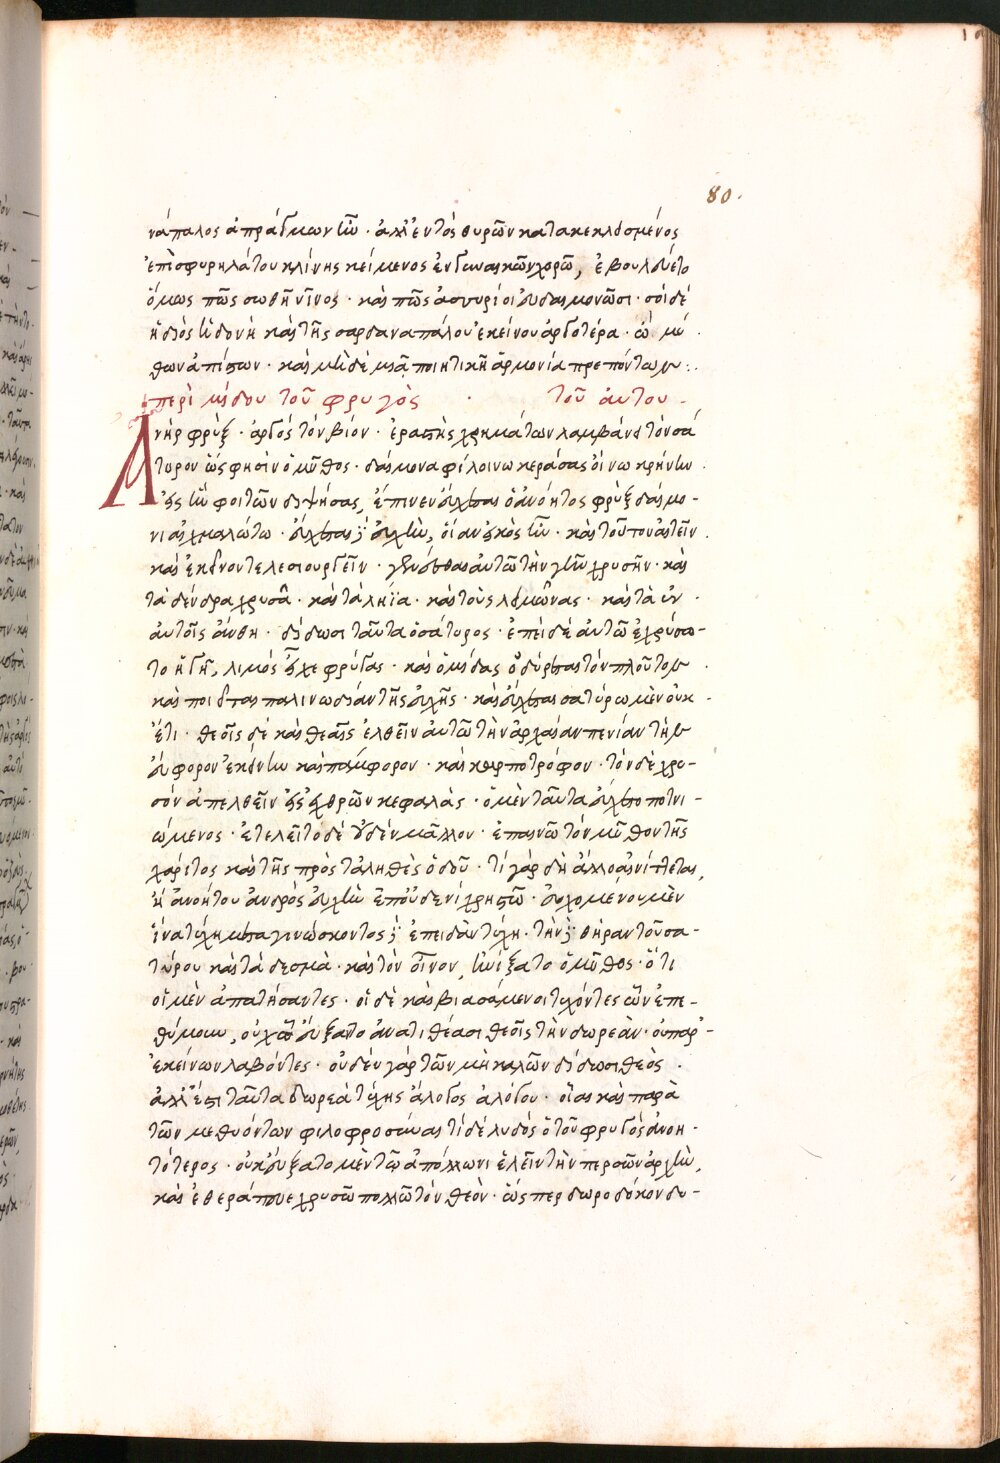 80.
νάπαλος ἀπράγμων ἦν · ἀλλ' ἐντὸς θυρῶν κατακεκλεισμένος
ἐπὶ σφυρηλάτου κλίνης κείμενος ἐν γυναικῶν χορῶ, ἐβουλεύετο
ὅμως πῶς σωθῆ νῖνος · καὶ πῶς ἀσσύριοι εὐδαιμονῶσι · σοὶ δὲ
ἡ θεὸς ἡδονὴ καὶ τῆς σαρδαναπάλου ἐκείνου ἀργοτέρα · ὢ μύ
θων ἀπίστων · καὶ μηδὲ μιᾷ ποιητικῆ ἁρμονία πρεπόντων :.
περὶ μίδου τοῦ φρυγὸς · τοῦ ἀυτου -
Ἀνὴρ φρὺξ · ἀργὸς τὸν βίον · ἐραστὴς χρημάτων λαμβάνει τὸν σά
τυρον ὥς φησὶν ὁ μῦθος · δαίμονα φίλοινον κεράσας οἴνω κρήνην ·
εἰς ἣν φοιτῶν διψήσας, ἔπινεν εὔχεται ὁ ἀνόητος φρὺξ δαίμο -
νι αἰχμαλώτω · εὔχεται δὲ εὐχὴν, οἵαν εἰκὸς ἦν · καὶ τοῦτον ἀιτεῖν ·
καὶ ἐκεῖνον τελεσιουργεῖν · γενέσθαι ἀυτῶ τὴν γῆν χρυσῆν · καὶ
τὰ δένδρα χρυσᾶ · καὶ τὰ λήϊα · καὶ τοὺς λειμῶνας · καὶ τὰ ἐν ·
ἀυτοῖς ἄνθη · δίδωσι ταῦτα ὁ σάτυρος · ἐπεὶ δὲ ἀυτῶ ἐχρύσω -
το ἡ γῆ, λιμὸς εἶχε φρύγας · καὶ ὁ μίδας ὀδύρεται τὸν πλοῦτον ·
καὶ ποιεῖται παλινωδίαν τῆς εὐχῆς · καὶ εὔχεται σατύρω μὲν οὐκ ·
ἔτι · θεοῖς δὲ καὶ θεαῖς ἐλθεῖν ἀυτῶ τὴν ἀρχαίαν πενίαν τὴν
εὔφορον ἐκείνην καὶ πάμφορον · καὶ καρποτρόφον · τὸν δὲ χρυ -
σὸν ἀπελθεῖν εἰς ἐχθρῶν κεφαλὰς · ὁ μὲν ταῦτα εὔχετο ποτνι -
ώμενος · ἐτελεῖτο δὲ οὐδὲν μᾶλλον · ἐπαινῶ τὸν μῦθον τῆς
χάριτος καὶ τῆς πρὸς τἀληθὲς ὁδοῦ · τί γὰρ δὴ ἄλλο αἰνίττεται,
ἢ ἀνοήτου ἀνδρὸς εὐχὴν ἐπ' οὐδενὶ χρηστῶ · εὐχομένου μὲν
ἵνα τύχη μεταγινώσκοντος δὲ ἐπειδὰν τύχη · τὴν δὲ θήραν τοῦ σα -
τύρου καὶ τὰ δεσμὰ · καὶ τὸν οἶνον, ἠνίξατο ὁ μῦθος · ὅτι
οἱ μὲν ἀπατήσαντες · οἱ δὲ καὶ βιασάμενοι τυχόντες ὧν ἐπε -
θύμουν, οὐχ ὧ εὔξαντο ἀνατιθέασι θεοῖς τὴν δωρεὰν · οὐ παρ' -
ἐκείνων λαβόντες · οὐδὲν γὰρ τῶν μὴ καλῶν δίδωσι θεὸς ·
ἀλλ' ἔστι ταῦτα δωρεὰ τύχης ἄλογος ἀλόγου · οἷαι καὶ παρὰ
τῶν μεθυόντων φιλοφροσύναι τί δὲ λυδὸς ὁ τοῦ φρυγὸς ἀνοη -
τότερος · οὐκ εὔξατο μὲν τῶ ἀπόλλωνι ἑλεῖν τὴν περσῶν ἀρχὴν,
καὶ ἐθεράπευε χρυσῶ πολλῶ τὸν θεὸν · ὥς περ δωροδόκον δυ -